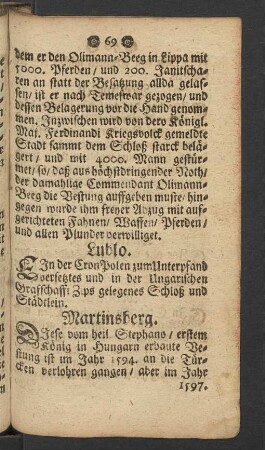 69
dem er den Olimann-Beeg in Lippa mit
5000. Pferden/ und 200. Janitscha-
ren an statt der Besatzung allda gelas-
sen/ ist er nach Temeswar gezogen/ und
dessen Belagerung vor die Hand genom-
men. Inzwischen wird von dero Königl.
Maj. Ferdinandi Kriegsvolck gemeldte
Stadt sammt dem Schloß starck belä-
gert/ und mit 4000. Mann gestür-
met/ so/ daß aus höchstdringender Noth/
der damahlige Commendant Olimann-
Beeg die Vestung auffgeben muste/ hin-
gegen wurde ihm freyer Abzug mit auf-
gerichteten Fahnen/ Waffen/ Pferden/
und allen Plunder verwilliget.
Lublo.
EIn der Cron Polen zum Unterpfand
versetztes und in der Ungarischen
Graffschafft Zips gelegenes Schloß und
Städtlein.
Martinsberg.
DIese vom heil. Stephano/ erstem
König in Hungarn erbaute Ve-
stung ist im Jahr 1594. an die Tür-
cken verlohren gangen/ aber im Jahr
1597.